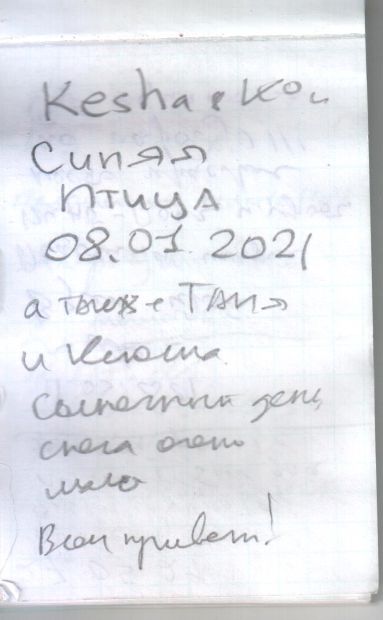 Kesha и Ко
Синяя
птица
08.01.2021
а также Таня
и Ксюша
Солнечный день
снега очень
мало
Всем привет!